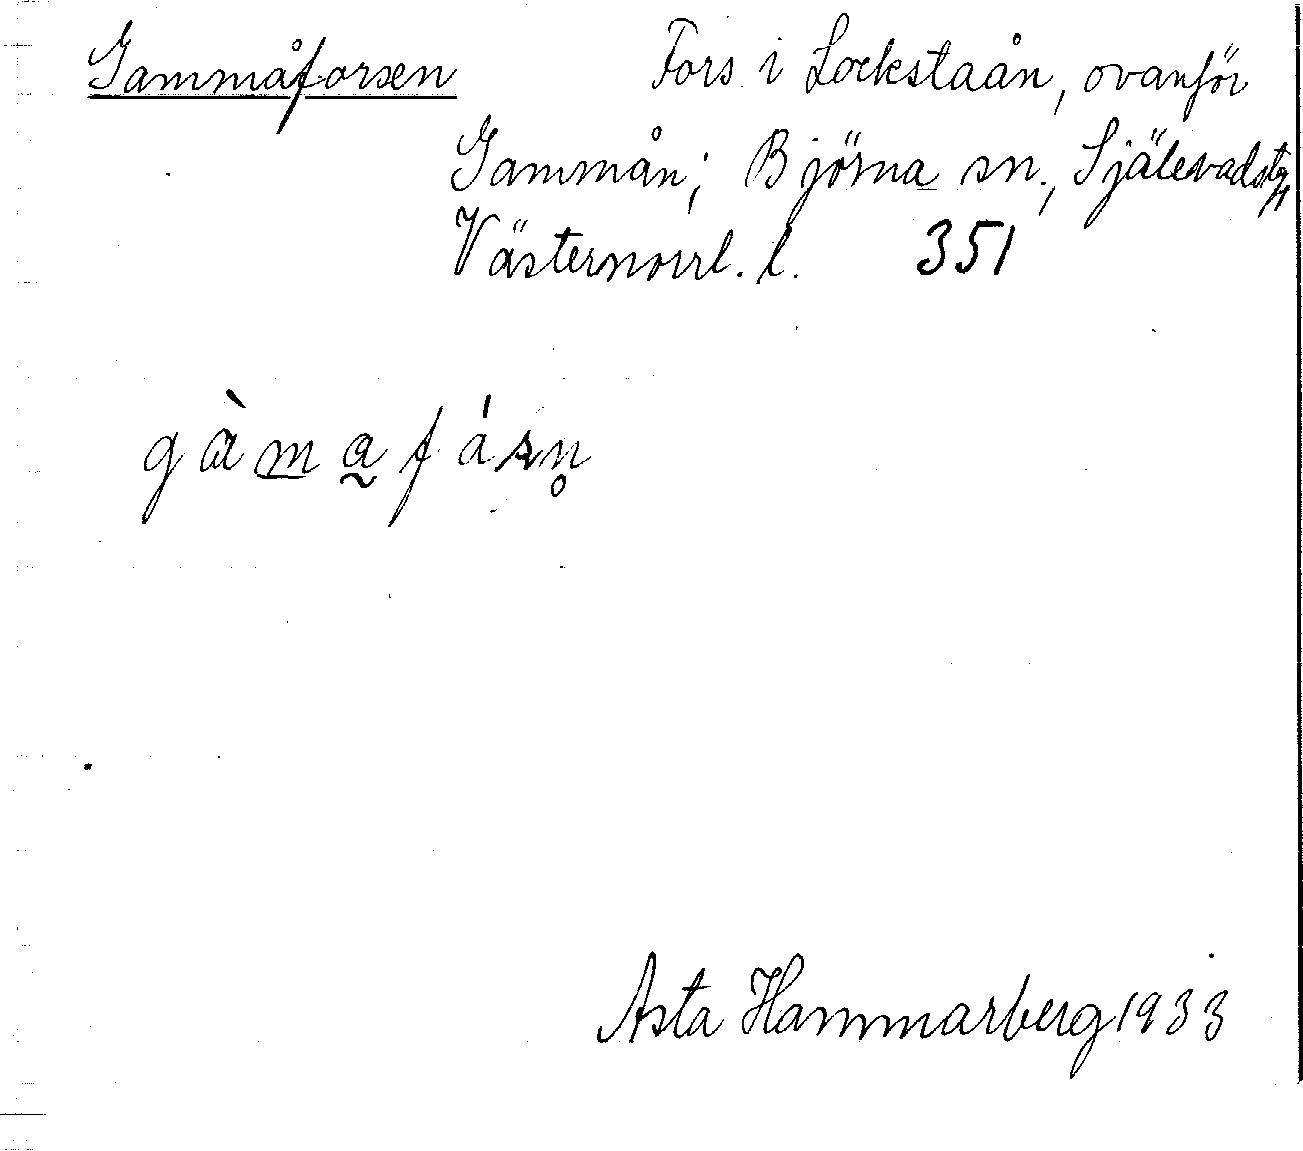 Gammåforsen Fors i Lockstaån, ovanför
Gammån; Björna sn., Själevads tg
Västernorrl. l. 351
gàmafásn̥
Asta Hammarberg 1933